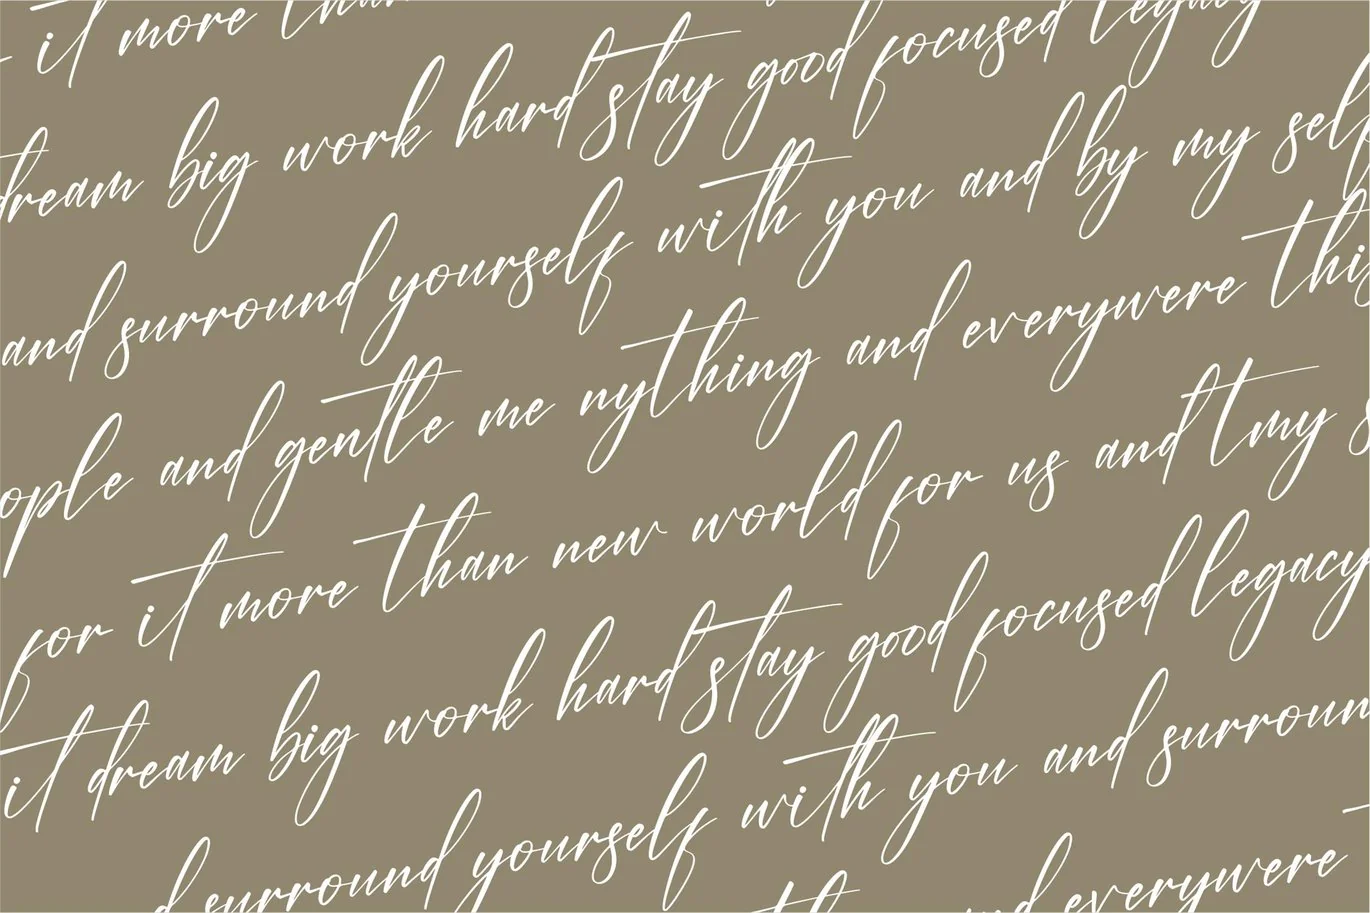 it more than
dream big work hard stay good focused legacy
and surround yourself with you and by my self
ople and gentle me nything and everywere this
for it more than new world for us and tmy
it dream big work hard stay good focused legacy
surround yourself with you and surroun
everywere